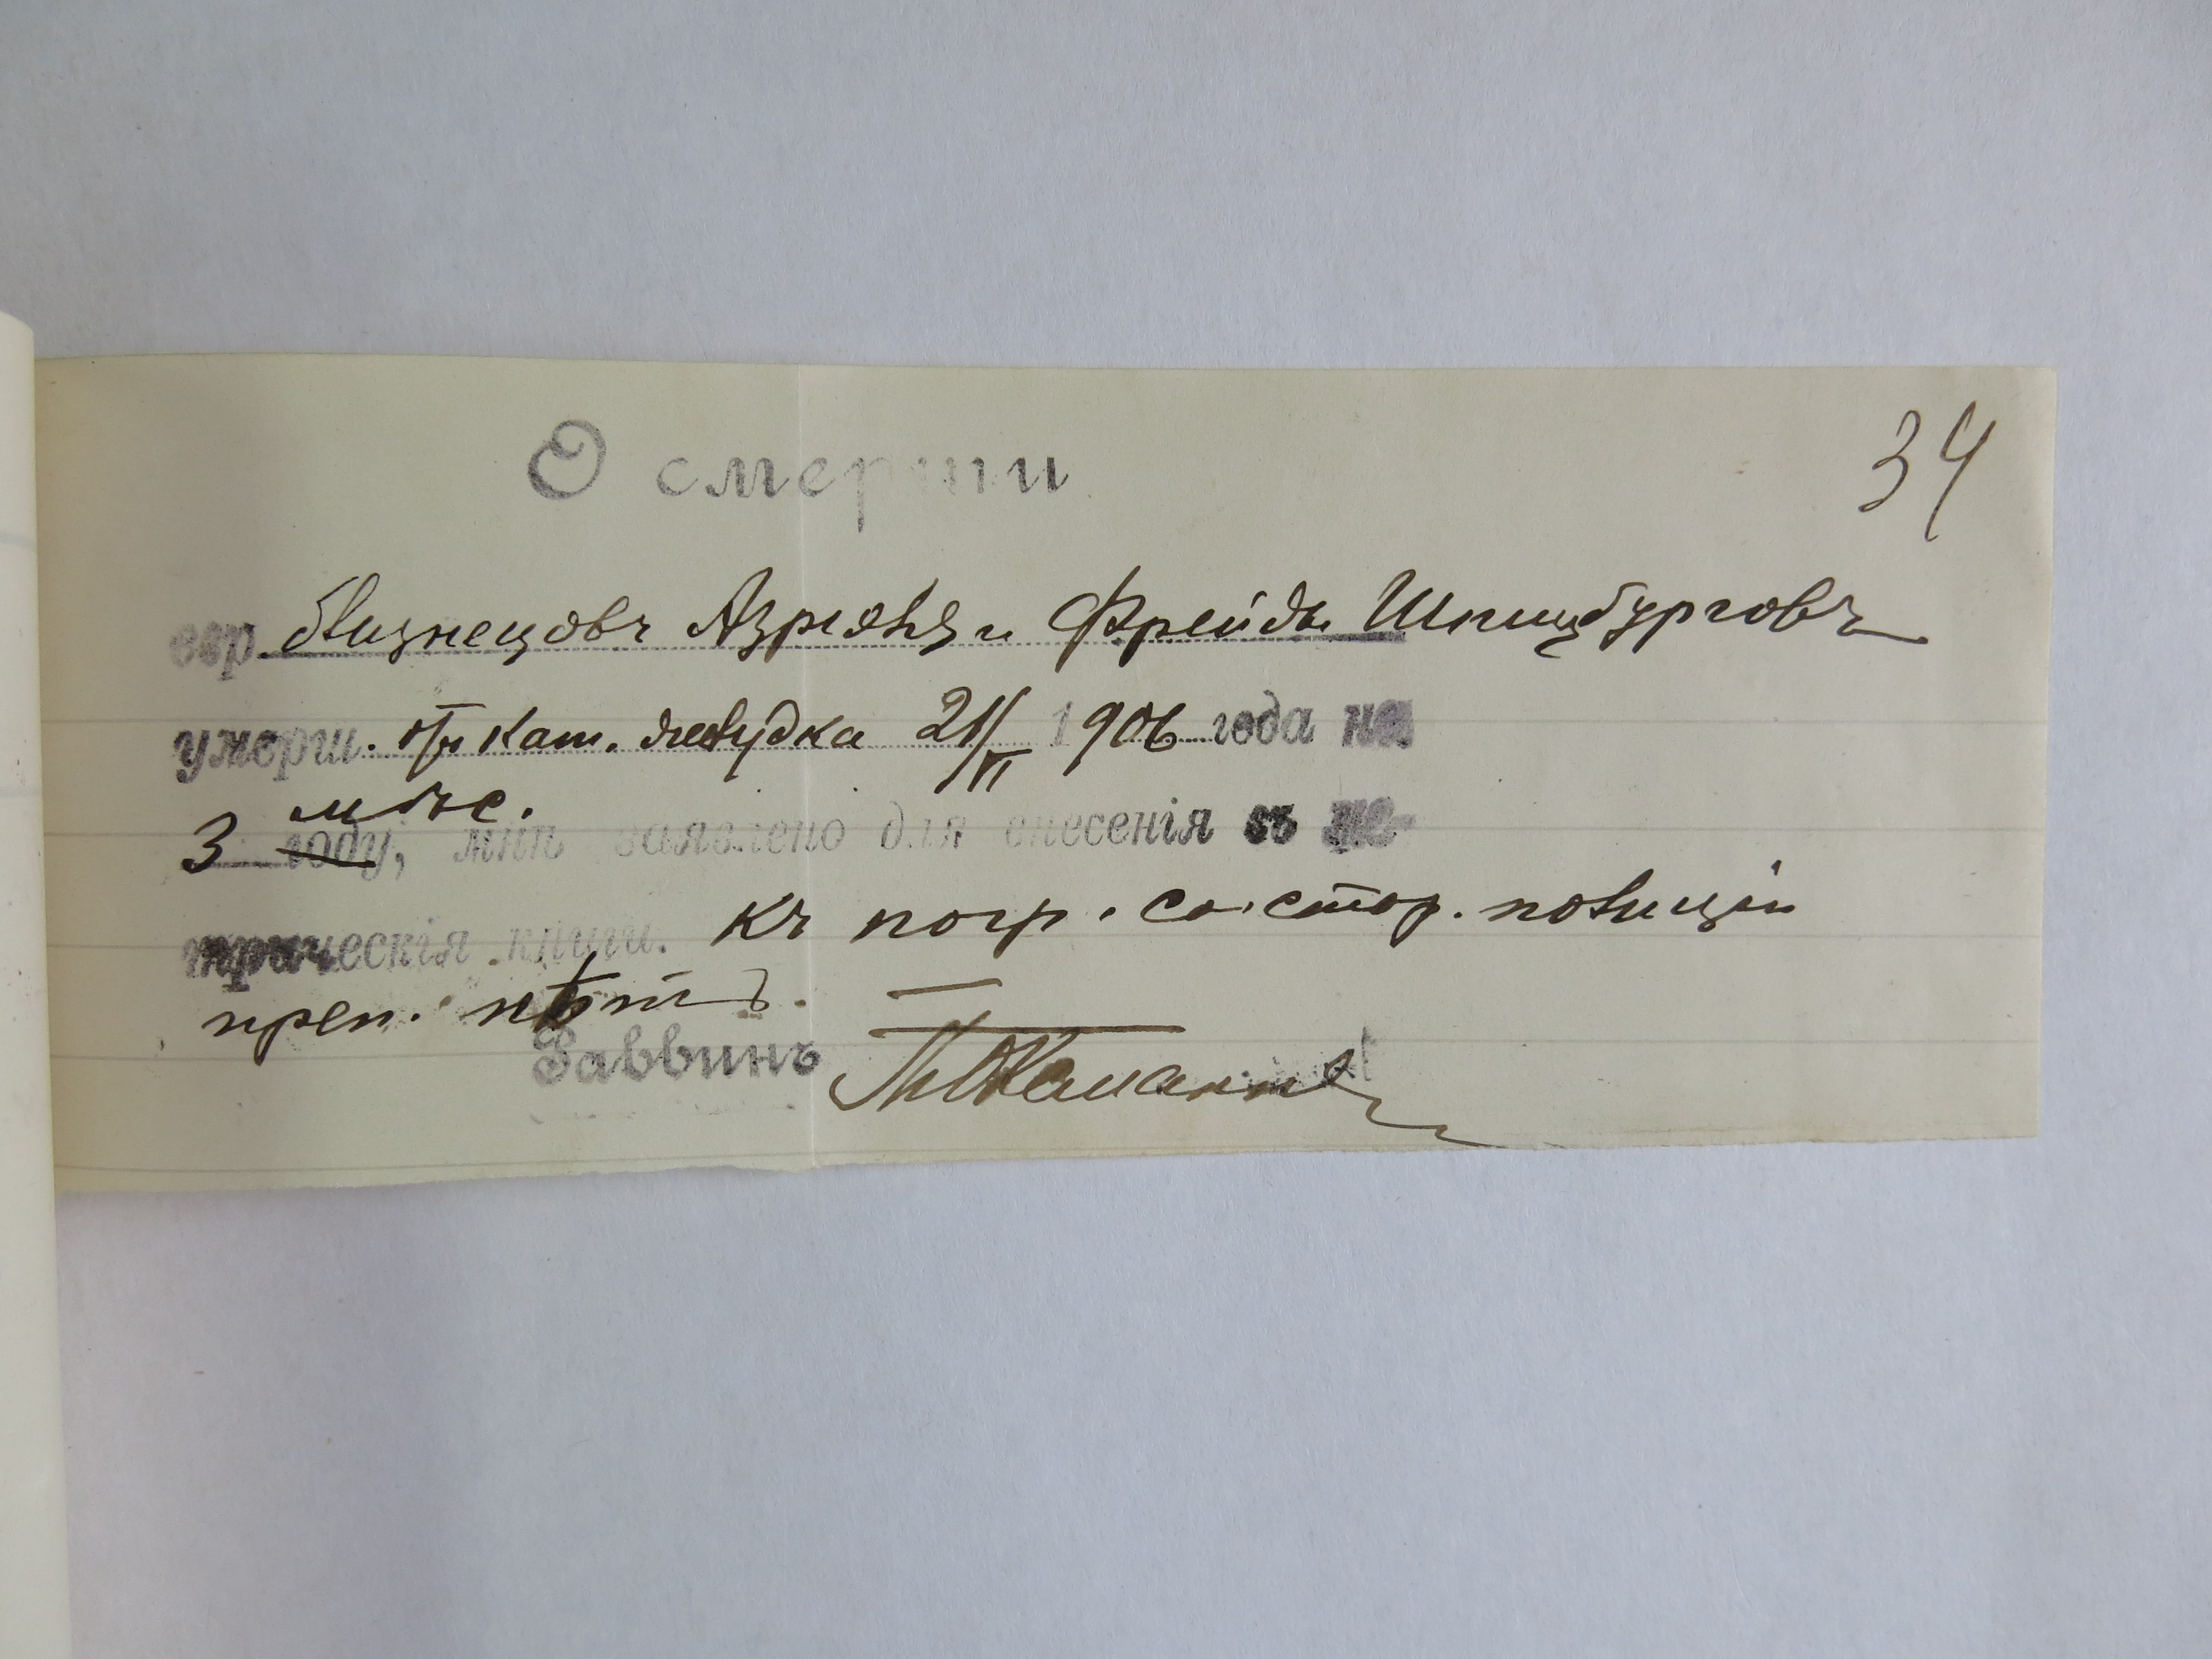 34
О смерти
евр. близнецовъ Азріэля и Фрейды Шпицбурговъ
умерш. отъ кат. желудка 21/VI 1906 года на
мѣс.
3 году, мнѣ заявлено для внесенія въ ме-
трическія книги. къ погр. со стор. полиціи
преп. нѣтъ.
Раввинъ